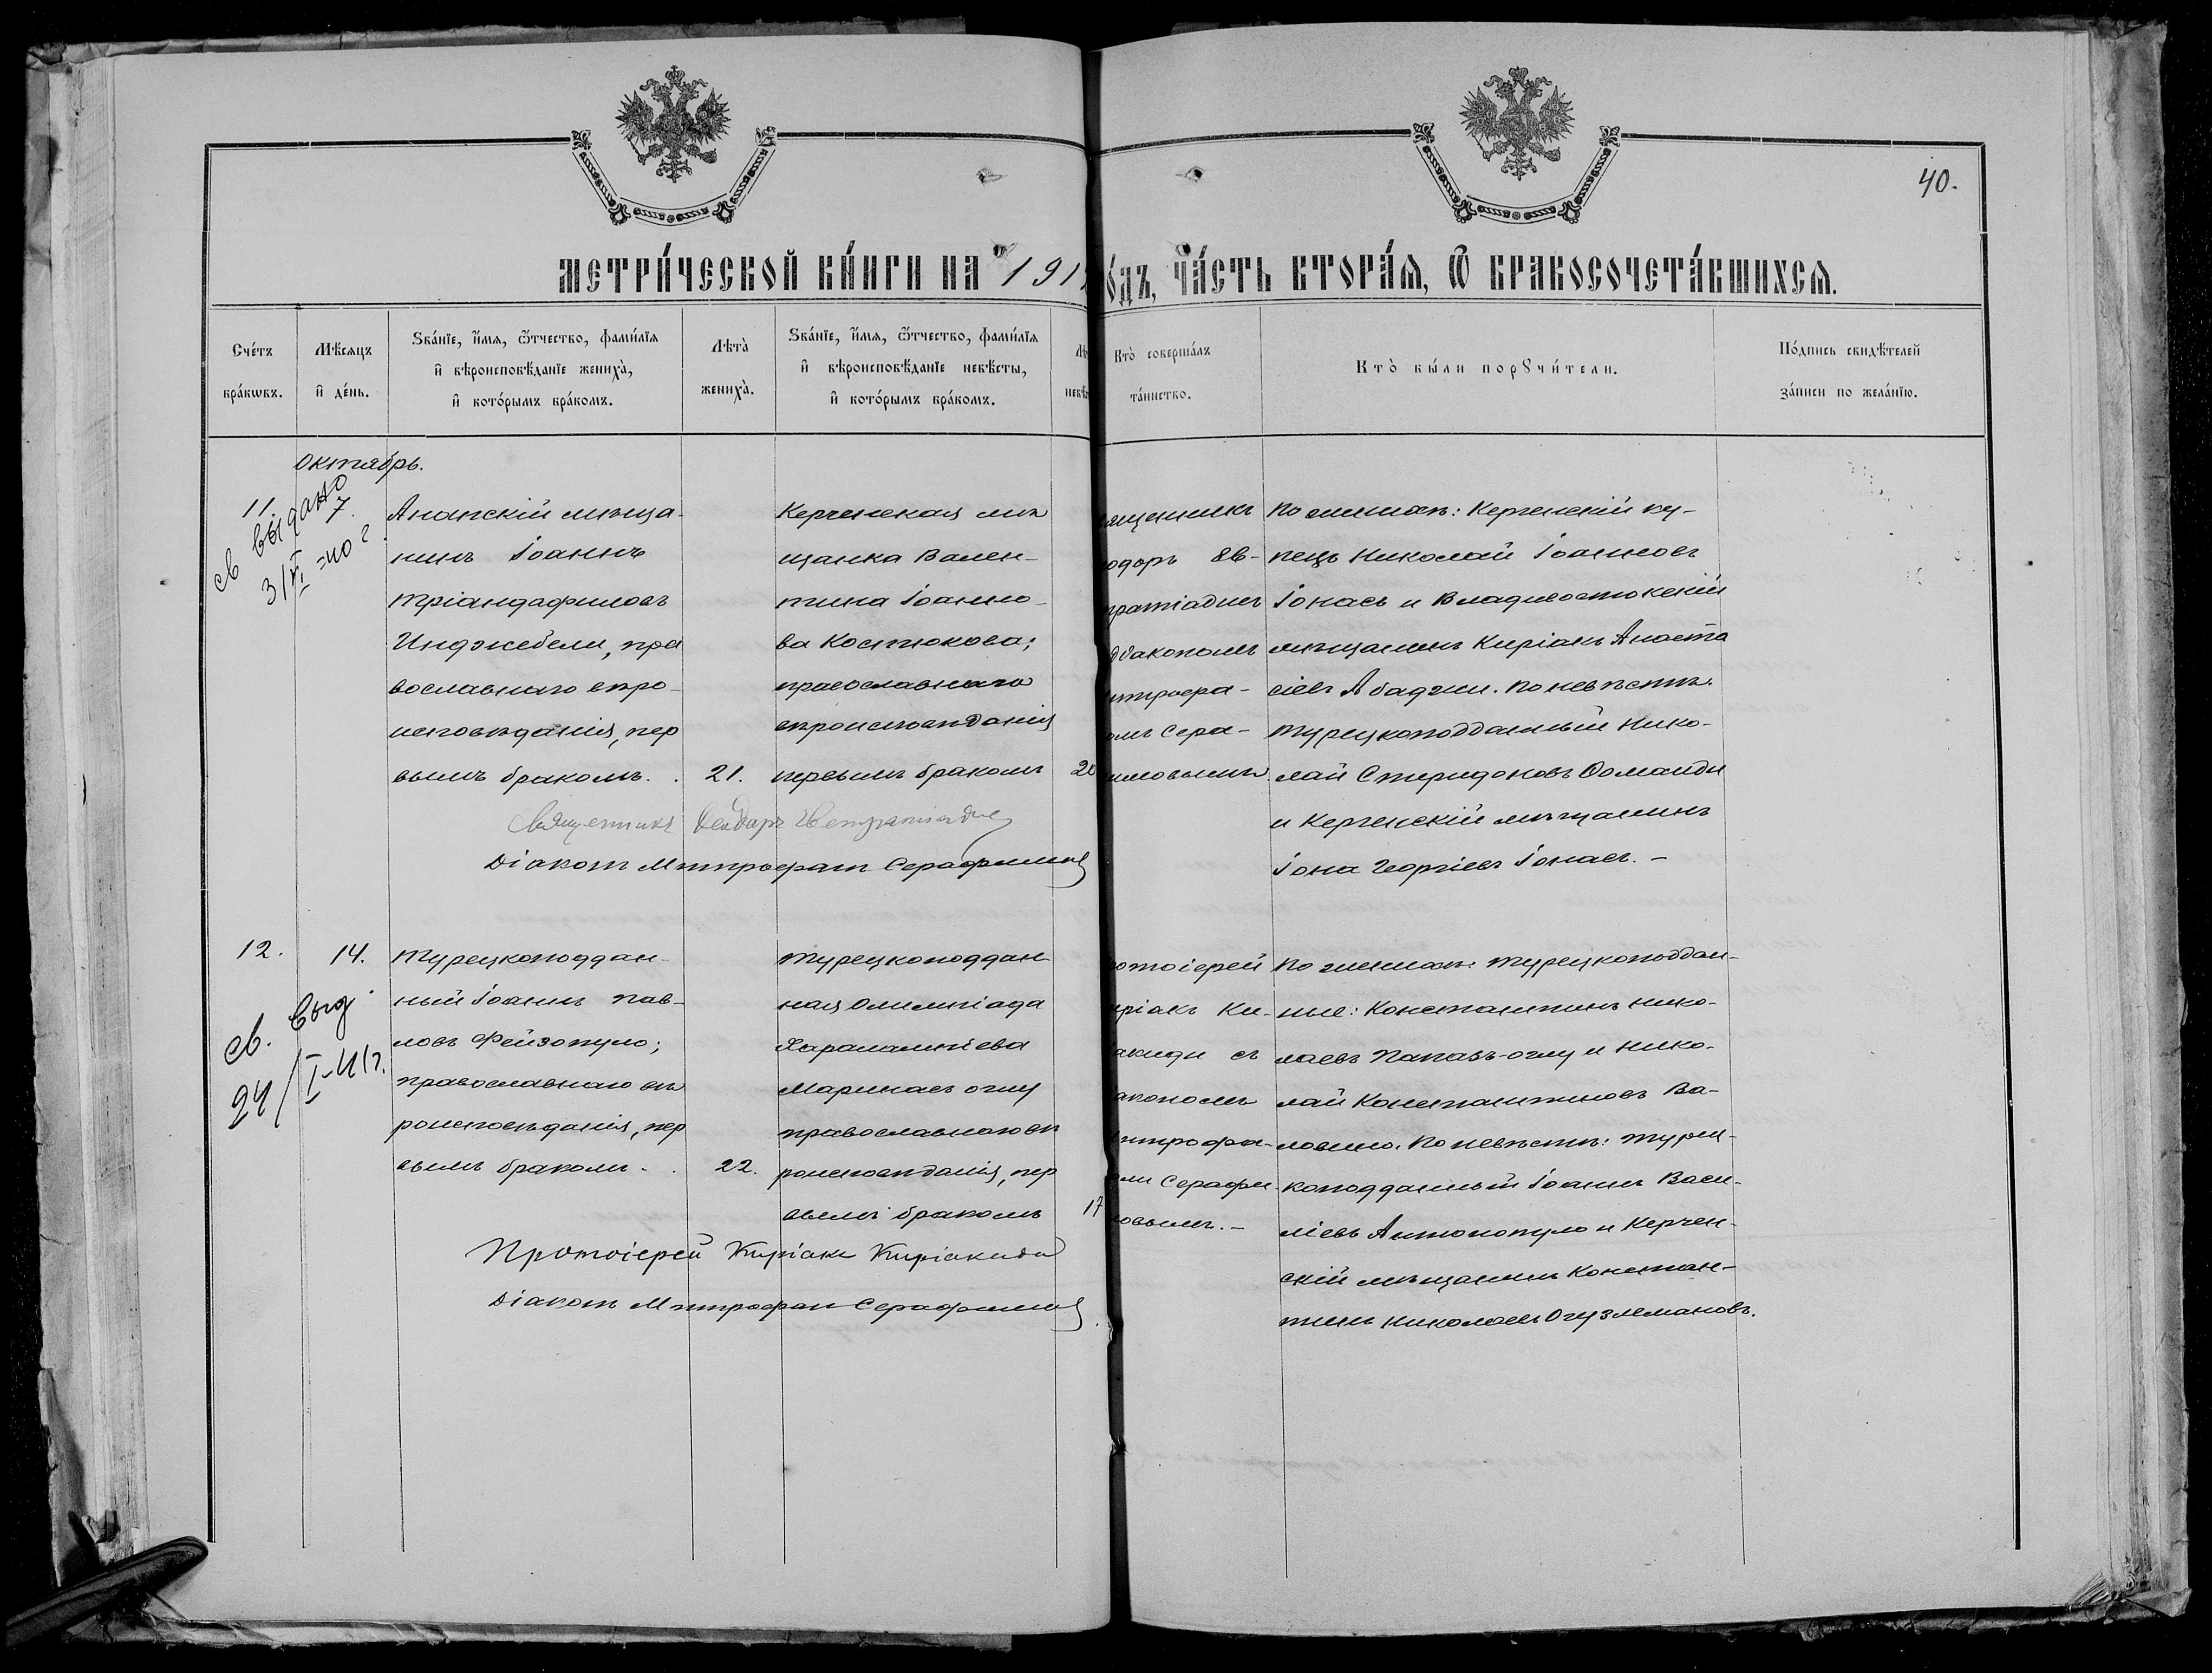 40.
МЕТРИ́ЧЕСКОЙ КНИ́ГИ НА 191
О́ДЪ, ЧА́СТЬ ВТОРА́Я, Ѿ БРАКОСОЧЕТА́ВШИХСЯ.
Сче́тъ бра́кѡвъ.
Мѣ́сяцъ и҆ де́нь.
Ѕва́нїе, и҆́мя, ѻ҆́тчество, фами́лїя
и҆ вѣроисповѣ́данїе жениха̀,
и҆ кото́рымъ бра́комъ.
Лѣта̀ жениха̀.
Ѕва́нїе, и҆́мя, ѻ҆́тчество, фами́лїя
и҆ вѣроисповѣ́данїе невѣ́сты,
и҆ кото́рымъ бра́комъ.
Лѣ
невѣ
Кто̀ соверша́лъ
та́инство.
Кто̀ бы́ли порꙋчи́тели.
По́дпись свидѣ́телей
за́писи по жела́нїю.
Октябрь.
11.
7.
св выдано
3/VI =40 г
Анапскій мѣща-
нинъ Іоаннъ
Тріандафиловъ
Инджебели, пра
вославнаго вѣро-
исповѣданія, пер
вымъ бракомъ. .
21.
Керченская мѣ
щанка Вален-
тина Іоанно-
ва Костюкова;
православнаго
вѣроисповѣданія
первымъ бракомъ
20
ященникъ
одоръ Ев-
тратіадисъ
діакономъ
итрофа-
омъ Сера-
имовымъ.
По женихѣ: Керченскій ку-
пецъ Николай Іоанновъ
Іонасъ и Владивостокскій
мѣщанинъ Киріакъ Анаста
сіевъ Абаджи. По невѣстѣ:
турецкоподданный Нико-
лай Спиридоновъ Османди
и Керченскій мѣщанинъ
Іона Георгіевъ Іонасъ. –
Священникъ Ѳеодоръ Евстратіадис
Діаконъ Митрофанъ Серафимов
12.
14.
св. выд.
24/I-41г.
Турецкоподдан-
ный Іоаннъ Пав-
ловъ Фейзопуло;
православнаго вѣ
роисповѣданія, пер
вымъ бракомъ. .
22.
Турецкоподдан
ная Олимпіада
Харалампіева
Маринасъ оглу
православнаго вѣ
роисповѣданія, пер
вымъ бракомъ
17
отоіерей
иріакъ Ки-
акиди съ
акономъ
итрофа-
омъ Серафи-
овымъ. –
По женихѣ: турецкоподдан-
ные: Константинъ Нико-
лаевъ Папазъ-оглу и Нико-
лай Константиновъ Ва-
ловино. По невѣстѣ: турец-
коподданный Іоаннъ Васи-
ліевъ Антонопуло и Керчен-
скій мѣщанинъ Констан-
тинъ Николаевъ Огузлемановъ.
Протоіерей Киріакъ Киріакиди
Діаконъ Митрофан Серафимов